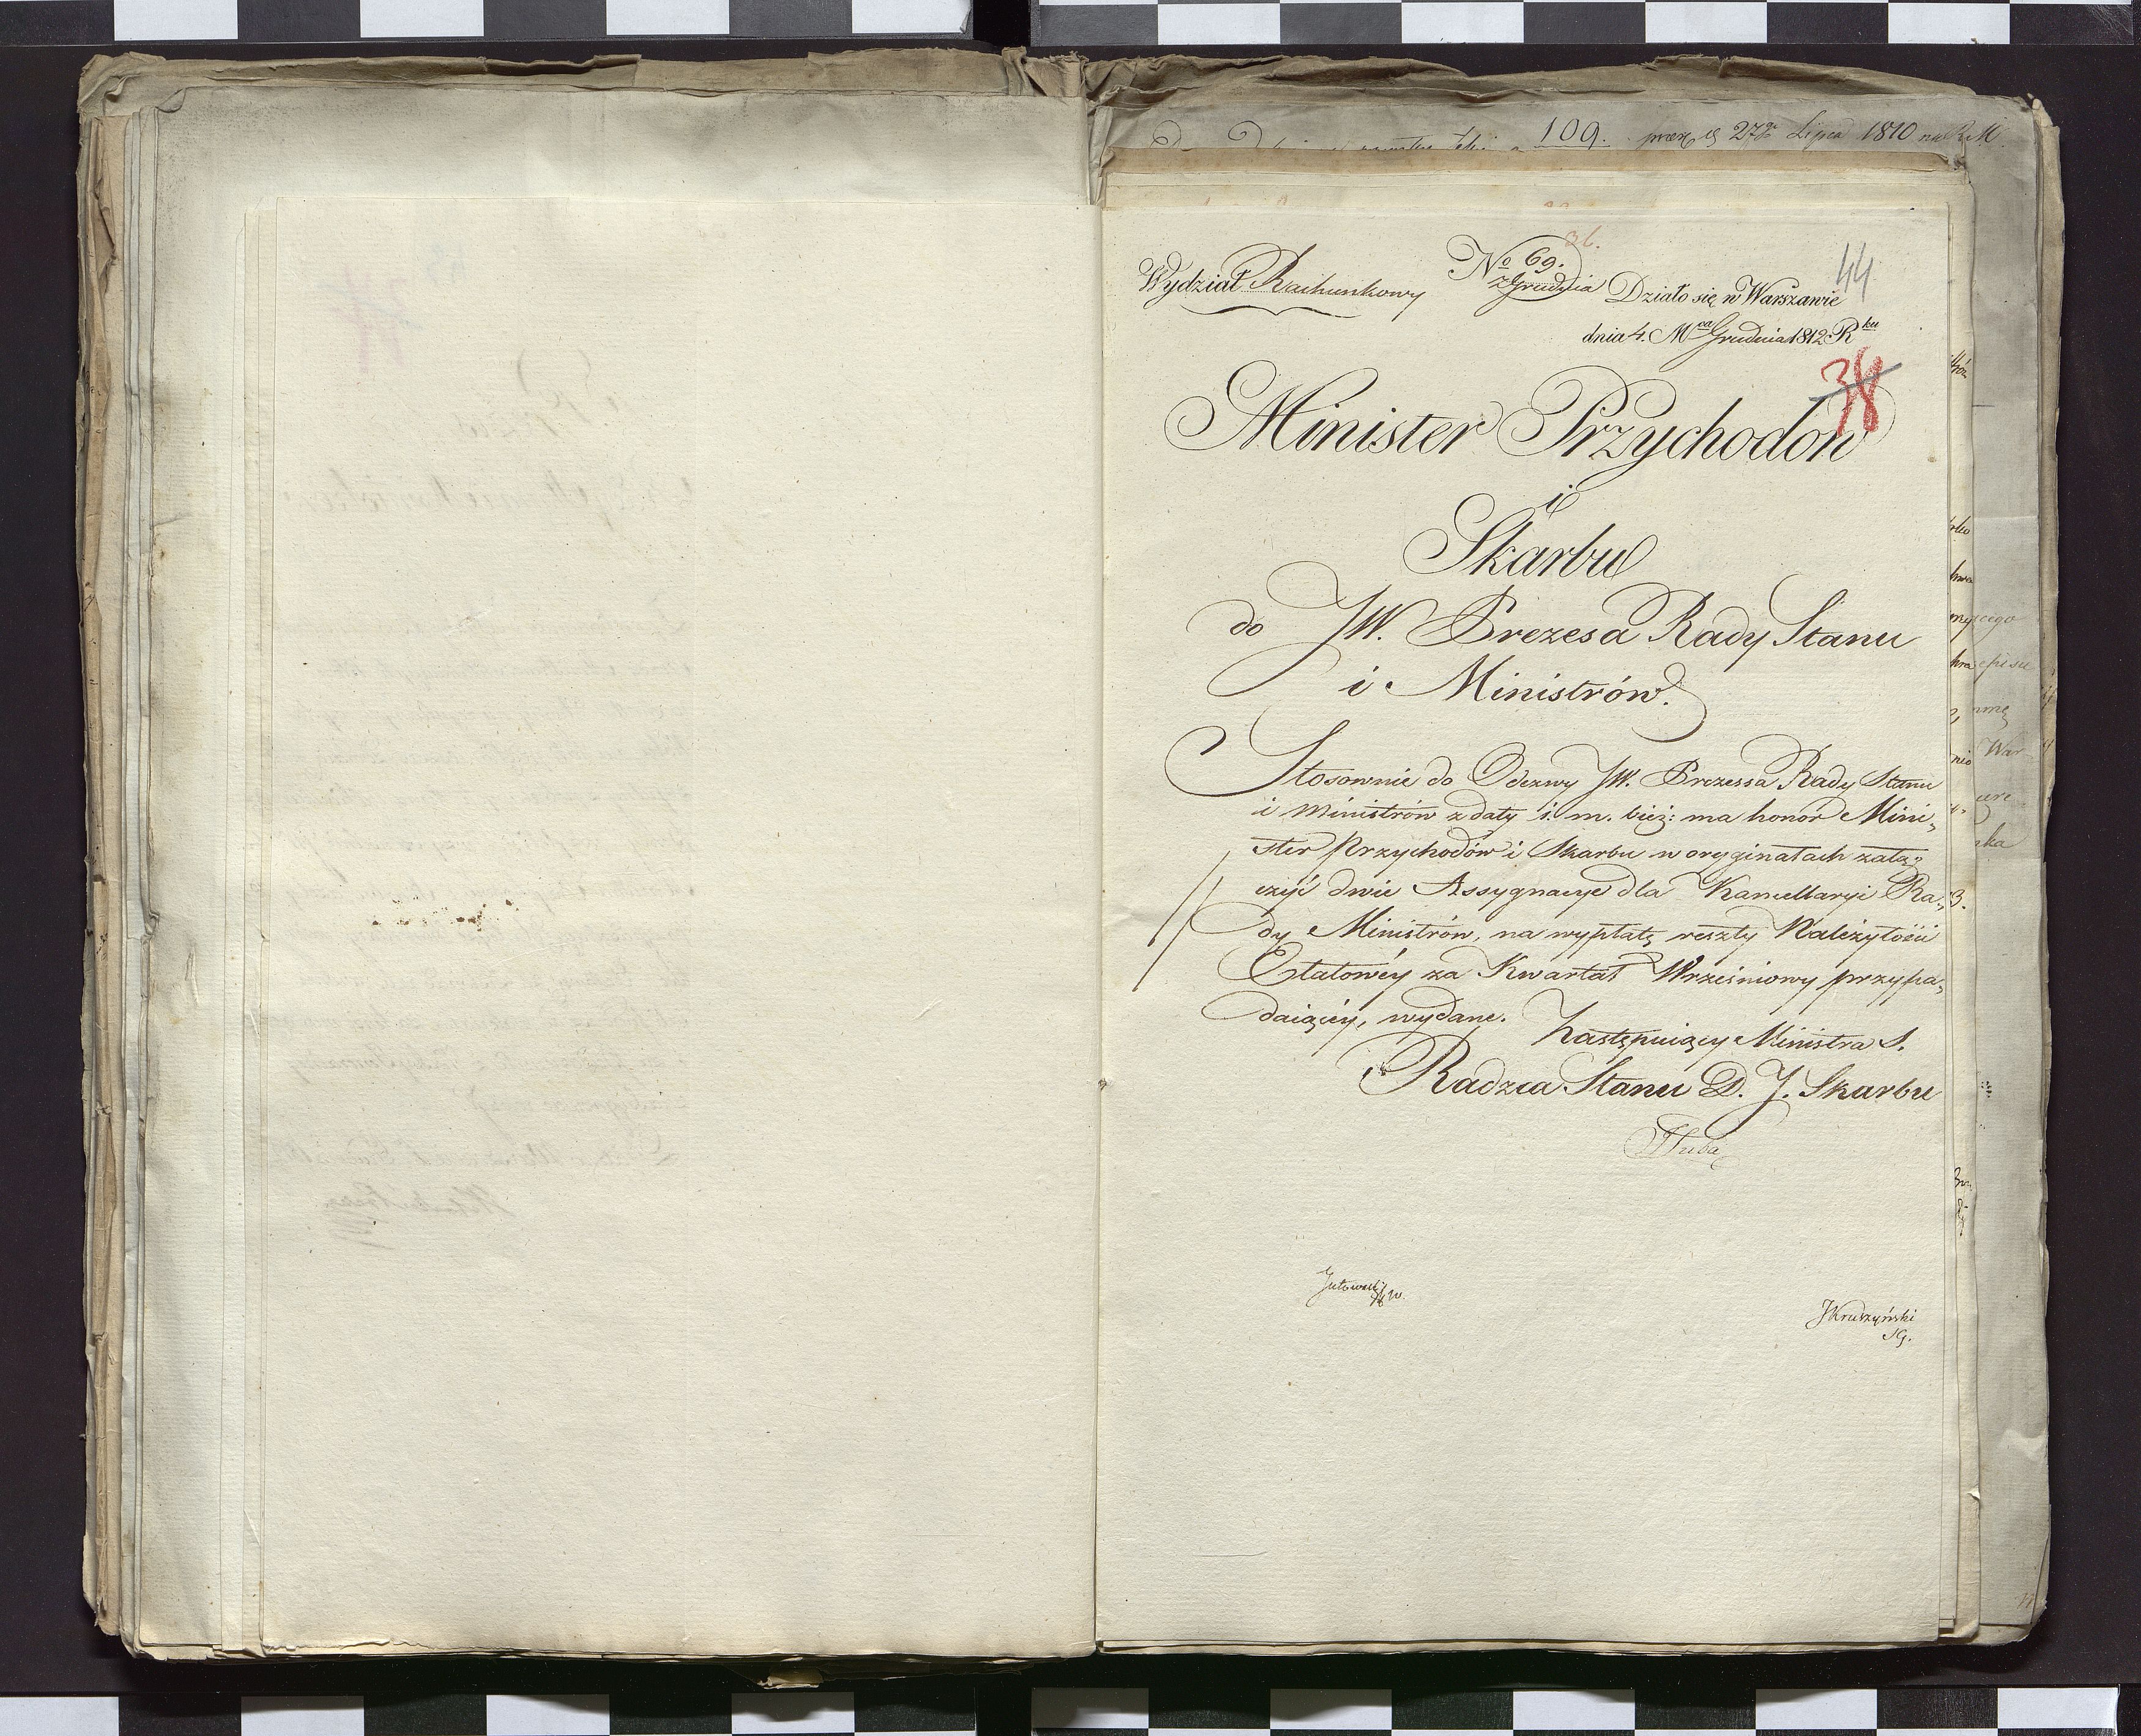 109. 27go Lipca 1810 na R M.
36.
No 69.
z Grudnia
44
Wydział Rachunkowy
Działo się w Warszawie
dnia 4. Mca Grudnia 1812 Rku
38
Minister Przychodów
i
Skarbu
do JW. Prezesa Rady Stanu
i Ministrów.
Stosownie do Odezwy JW. Prezessa Rady Stanu
i Ministrów z daty 1. m. bież: ma honor Mini„
ster Przychodów i Skarbu w oryginałach załą„
czyć dwie Assygnacye dla Kancellaryi Ra„
dy Ministrów, na wypłatę reszty Należytości
Etatowéy za Kwartał Wrześniowy przypa„
daiącéy, wydane.
Zastępuiący Ministra S.
Radzca Stanu D. J. Skarbu
JKruszyński
SG.